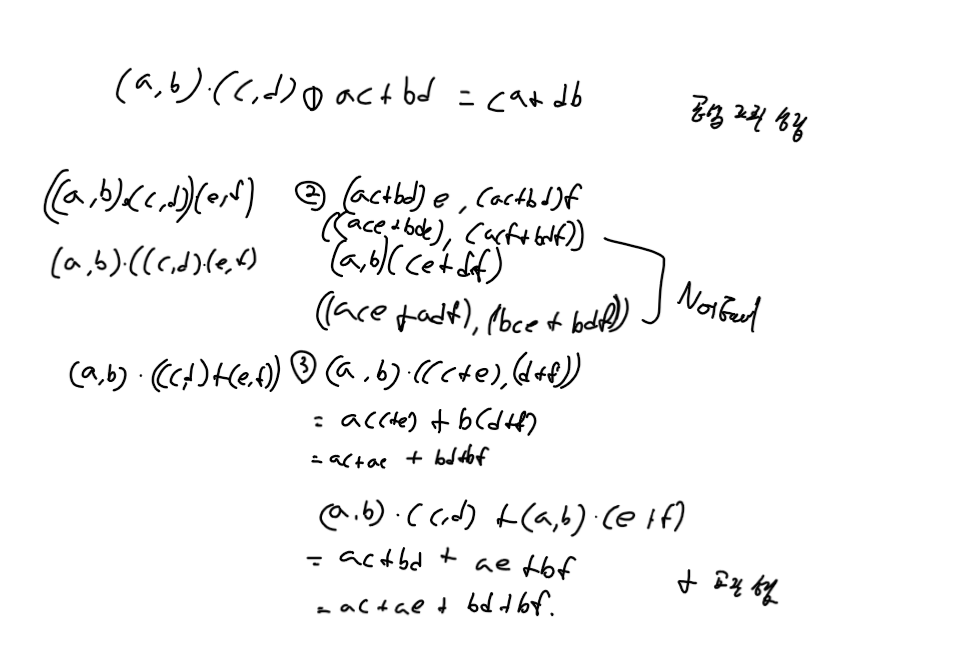 (a,b)·(c,d) ① ac+bd = ca+db
((a,b)·(c,d))(e,f) ② (ac+bd)e, (ac+bd)f
((ace+bde), (acf+bdf))
(a,b)·((c,d)·(e,f) (a,b)(ce+df)
((ace+adf), (bce+bdf))
(a,b)·((c,d)+(e,f)) ③ (a,b)·((c+e),(d+f))
= a(c+e) + b(d+f)
= ac+ae + bd+bf
(a,b)·(c,d) +(a,b)·(e,f)
= ac+bd + ae+bf
= ac+ae+ bd+bf.